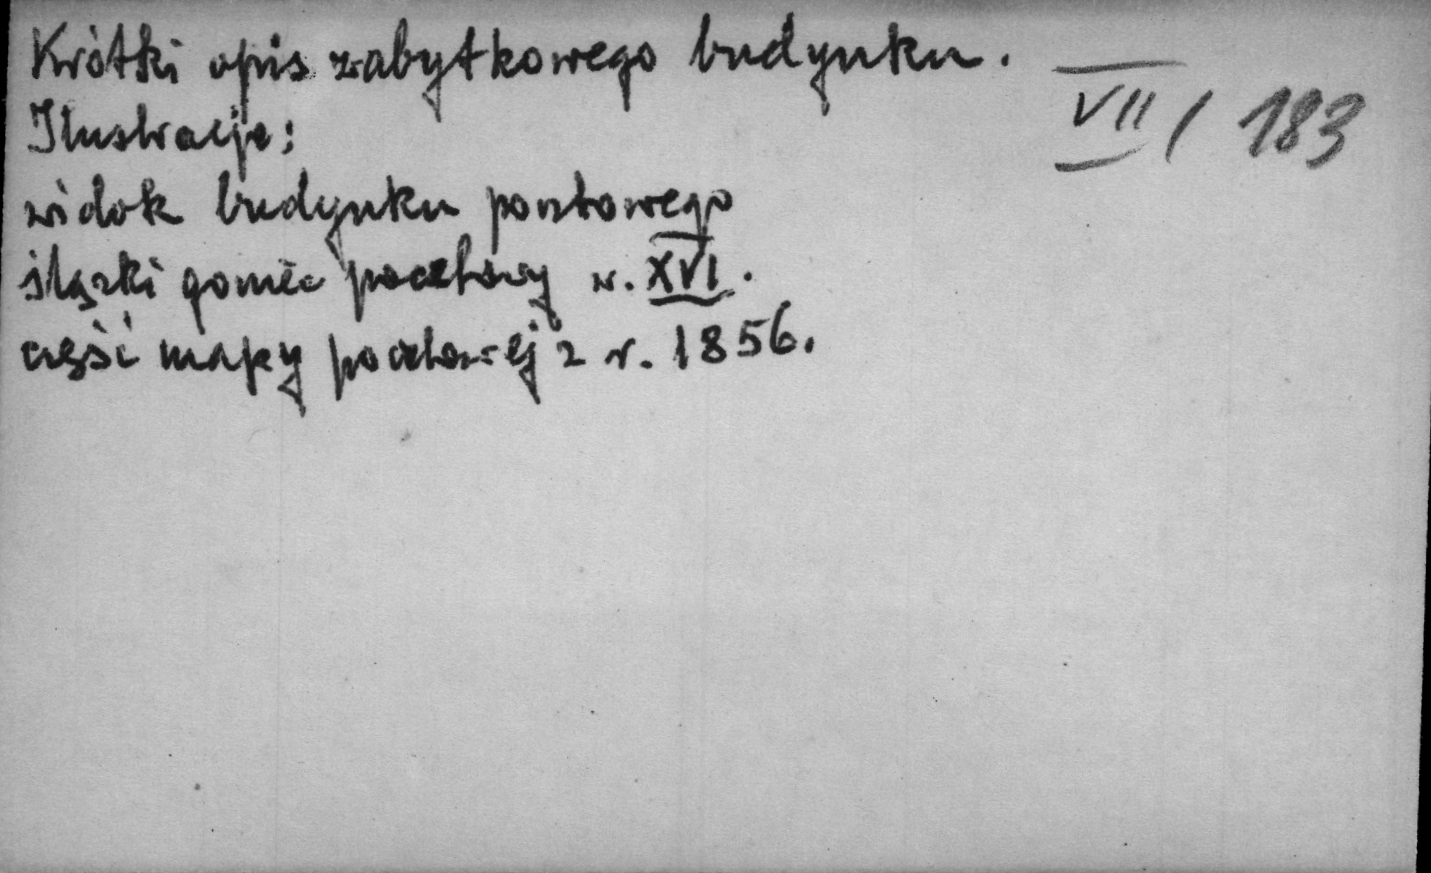 Krótki opis zabytkowego budynku.
VII / 183
Ilustracje:
widok budynku pocztowego
śląski goniec pocztowy w. XVI.
część mapy pocztowej z r. 1856.